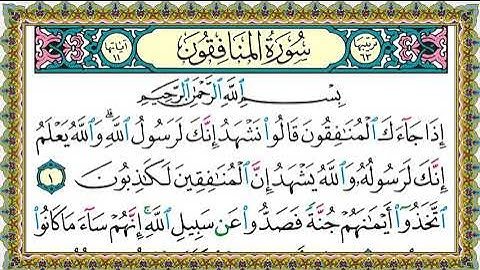 ترتيبها ٦٣ سُورَةُ الْمُنَافِقُونَ آياتها ١١
بِسْمِ اللَّهِ الرَّحْمَٰنِ الرَّحِيمِ
إِذَا جَآءَكَ ٱلْمُنَٰفِقُونَ قَالُوا۟ نَشْهَدُ إِنَّكَ لَرَسُولُ ٱللَّهِ ۗ وَٱللَّهُ يَعْلَمُ
إِنَّكَ لَرَسُولُهُۥ وَٱللَّهُ يَشْهَدُ إِنَّ ٱلْمُنَٰفِقِينَ لَكَٰذِبُونَ ١
ٱتَّخَذُوٓا۟ أَيْمَٰنَهُمْ جُنَّةً فَصَدُّوا۟ عَن سَبِيلِ ٱللَّهِ ۚ إِنَّهُمْ سَآءَ مَا كَانُوا۟